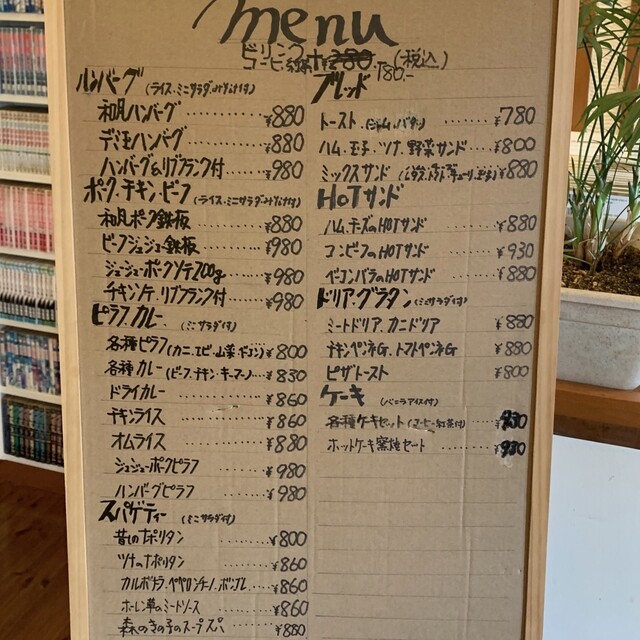 menu
ドリンク付 ¥780.-(税込)
コーヒー 紅茶
ハンバーグ (ライス.ミニサラダ.みそ汁付)
和風ハンバーグ ……… ¥880
デミ玉ハンバーグ ……… ¥880
ハンバーグ&リブランク付 …… ¥980
ポーク.チキン.ビーフ (ライス.ミニサラダみそ汁付)
和風ポーク鉄板 ……… ¥880
ビーフジュージュー鉄板 ¥980
ジュージューポークソテー200g ……¥980
チキンソテー.リブランク付……¥980
ピラフ.カレー (ミニサラダ付)
各種ピラフ(カニ.エビ.山菜.ベーコン) ¥800
各種カレー(ビーフ.チキン.キーマー)… ¥830
ドライカレー ……… ¥860
チキンライス ……… ¥860
オムライス ……… ¥880
ジュージューポークピラフ ……… ¥980
ハンバーグピラフ ……… ¥980
スパゲティー (ミニサラダ付)
昔しのナポリタン ……… ¥800
ツナのナポリタン ……… ¥860
カルボナーラ.ペペロンチーノ.ボンゴレ… ¥860
ホーレン草のミートソース ……¥860
森のきの子のスープスパ …… ¥880
ブレッド
トースト.(ジャム.バター) …… ¥780
ハム.玉子.ツナ.野菜サンド …… ¥800
ミックスサンド ¥880
HOTサンド
ハム.チーズのHOTサンド …… ¥880
コンビーフのHOTサンド …… ¥930
ベーコンバラのHOTサンド …… ¥880
ドリア.グラタン (ミニサラダ付)
ミートドリア.カニドリア …… ¥880
チキンペンネG.トマトペンネG …… ¥880
ピザトースト …… ¥800
ケーキ (バニラアイス付)
各種ケーキセット(コーヒー.紅茶付) … ¥930
ホットケーキ窯焼セット …… ¥930